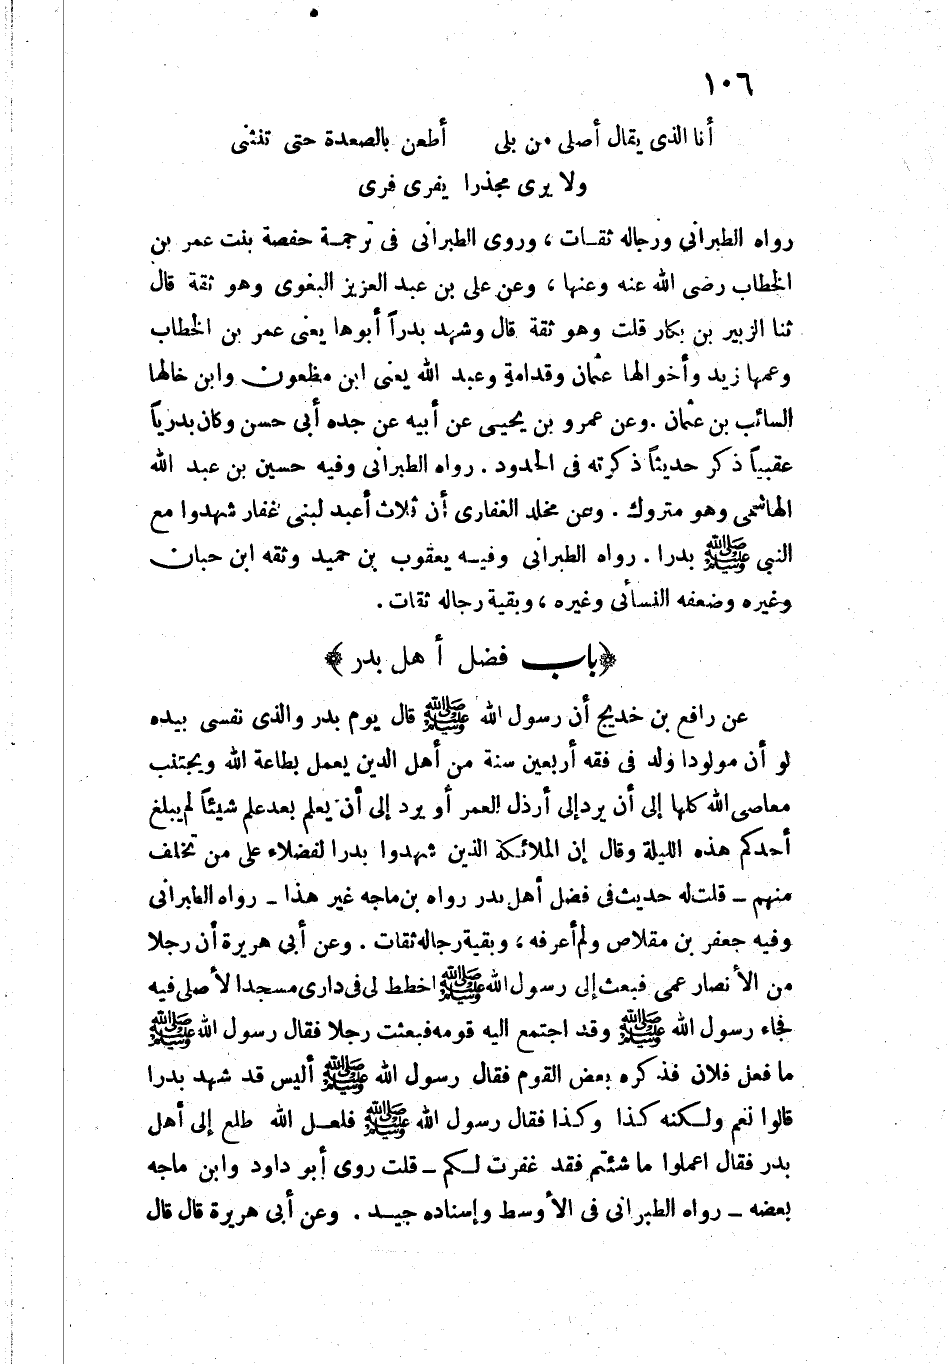 ١٠٦
أنا الذى يقال أصلى من بلى أطعن بالصعدة حتى تنثنى
ولا يرى مجذرا يفرى فرى
رواه الطبرانى ورجاله ثقـات ، وروى الطبرانى فى ترجمـة حفصة بنت عمر بن
الخطاب رضى الله عنه وعنها ، وعن على بن عبد العزيز البغوى وهو ثقة قال
ثنا الزبير بن بكار قلت وهو ثقة قال وشهد بدراً أبوها يعنى عمر بن الخطاب
وعمها زيد وأخوالها عثمان وقدامة وعبد الله يعنى ابن مظعون وابن خالها
السائب بن عثمان . وعن عمرو بن يحيـى عن أبيه عن جده أبى حسن وكان بدرياً
عقبياً ذكر حديثاً ذكرته فى الحدود . رواه الطبرانى وفيه حسين بن عبد الله
الهاشمى وهو متروك . وعن مخلد الغفارى أن ثلاث أعبد لبنى غفار شهدوا مع
النبى ﷺ بدرا . رواه الطبرانى وفيـه يعقوب بن حميد وثقه ابن حبان
وغيره وضعفه النسائى وغيره ، وبقية رجاله ثقات .
﴿باب فضل أهل بدر﴾
عن رافع بن خديج أن رسول الله ﷺ قال يوم بدر والذى نفسى بيده
لو أن مولودا ولد فى فقه أربعين سنة من أهل الدين يعمل بطاعة الله ويجتنب
معاصى الله كلها إلى أن يرد إلى أرذل العمر أو يرد إلى أن يعلم بعد علم شيئاً لم يبلغ
أحدكم هذه الليلة وقال إن الملائكة الذين شهدوا بدرا لفضلاء على من تخلف
منهم ــ قلت له حديث فى فضل أهل بدر رواه بن ماجه غير هذا ــ رواه الطبرانى
وفيه جعفر بن مقلاص ولم أعرفه ، وبقية رجاله ثقات . وعن أبى هريرة أن رجلا
من الأنصار عمى فبعث إلى رسول الله ﷺ اخطط لى فى دارى مسجدا لأصلى فيه
فجاء رسول الله ﷺ وقد اجتمع اليه قومه فبعثت رجلا فقال رسول الله ﷺ
ما فعل فلان فذكره بعض القوم فقال رسول الله ﷺ أليس قد شهد بدرا
قالوا نعم ولـكنه كذا وكذا فقال رسول الله ﷺ فلعـل الله طلع إلى أهل
بدر فقال اعملوا ما شئتم فقد غفرت لـكم ــ قلت روى أبو داود وابن ماجه
بعضه ــ رواه الطبرانى فى الأوسط وإسناده جيـد . وعن أبى هريرة قال قال